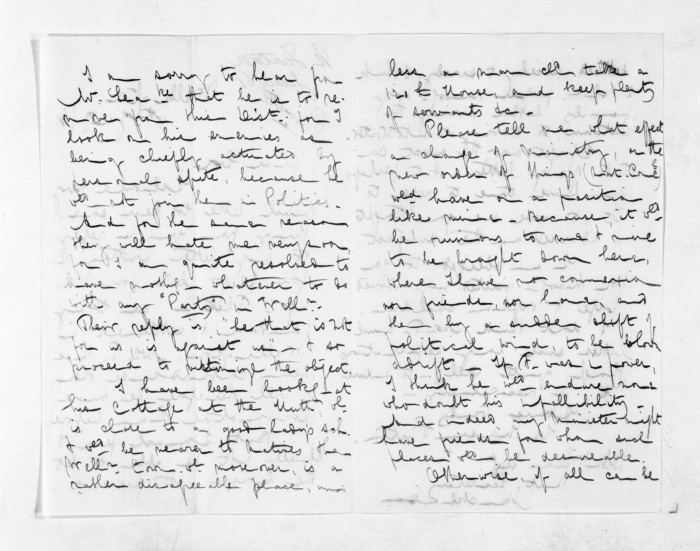 I am sorry to hear from
Mr. that he is to re-
move from this Dist. for I
look on his enemies as
being chiefly actuated by
personal spite, because he
wd. not join them in Politics.
And for the same reason
they will hate me very soon,
for I am quite resolved to
have nothg. whatever to do
with any "Party" in Welln.
Their reply is, "he that is not
for us is against us" - & so
proceed to the object.
I have been lookg. at
his Cottage at the Hutt wh.
is close to a good Ladys sch.
& wd. be nearer to Natives than
Welln. town wh. moreover, is a
rather disagreeable place, un-
less a man can take a
House, and keep plenty
of servants &c.
Please tell me what effect
a change of Ministry, or the
new order of things
wd. have on a position
like mine - Because, it wd.
be ruinous to me & mine
to be brought down here,
where I have no connexion
nor friends, nor home and
then by a sudden shift of
political wind, to be blown
adrift - If F. was in power,
I think he wd. endure none
who doubt his infallibility.
And indeed any Minister might
have friends for whom such
places wd. be desireable.
Otherwise, if all can be